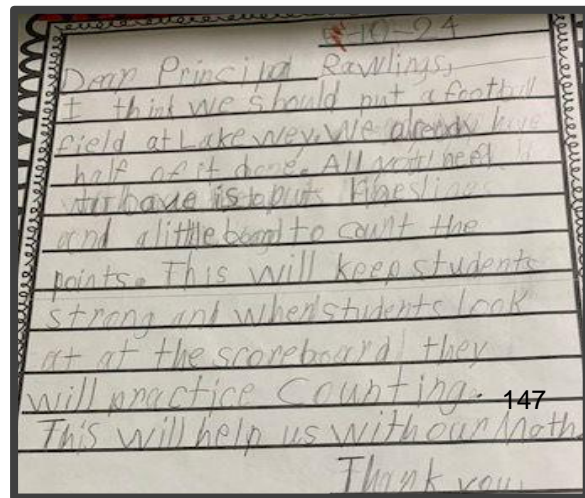 -10-24
Dear Principal Rawlings,
I think we should put a football
field at Lakewey. We already have
half of it done. All you need
to have is to put lines
and a little board to count the
points. This will keep students
strong and when students look
at at the scoreboard they
will practice Counting. 147
This will help us with our Math
Thank you,